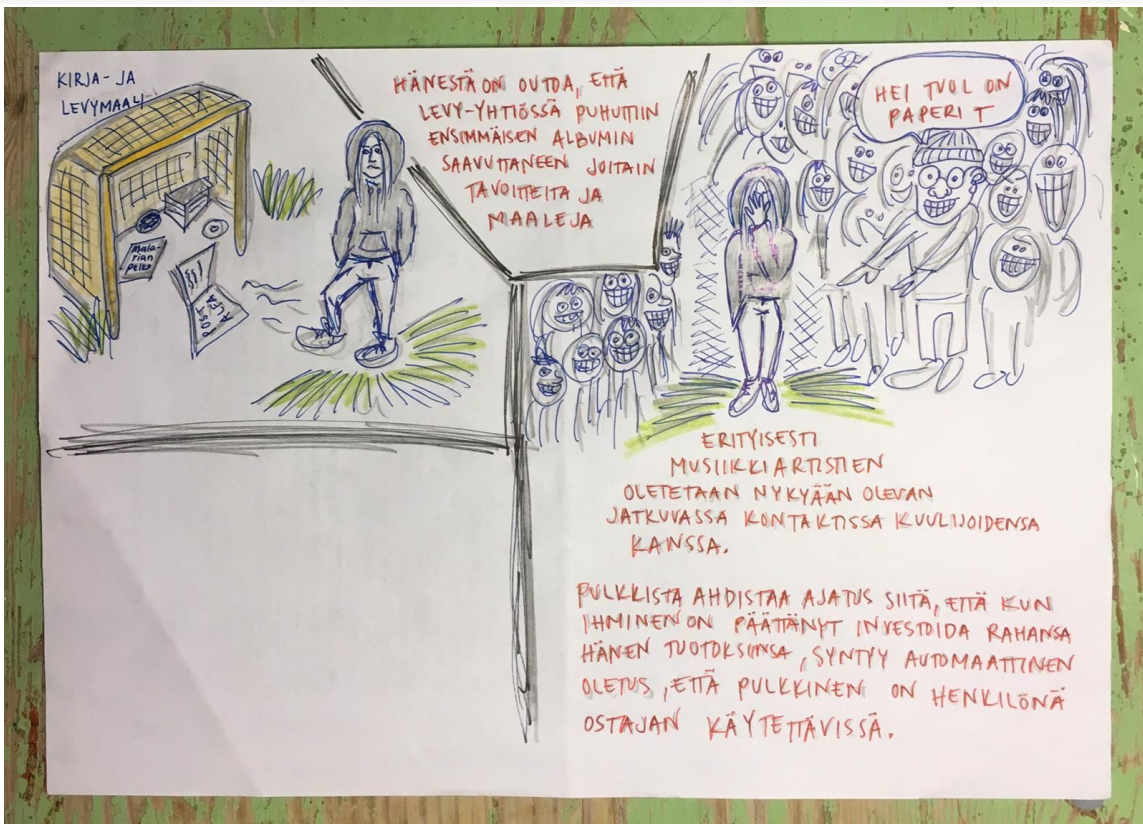 KIRJA- JA
LEVYMAALI
Mala-
rian
pelko
POST
ALFA
HÄNESTÄ ON OUTOA, ETTÄ
LEVY-YHTIÖSSÄ PUHUTTIIN
ENSIMMÄISEN ALBUMIN
SAAVUTTANEEN JOITAIN
TAVOITTEITA JA
MAALEJA
HEI TUOL ON
PAPERI T
ERITYISESTI
MUSIIKKIARTISTIEN
OLETETAAN NYKYÄÄN OLEVAN
JATKUVASSA KONTAKTISSA KUULIJOIDENSA
KANSSA.
PULKKISTA AHDISTAA AJATUS SIITÄ, ETTÄ KUN
IHMINEN ON PÄÄTTÄNYT INVESTOIDA RAHANSA
HÄNEN TUOTOKSIINSA, SYNTYY AUTOMAATTINEN
OLETUS, ETTÄ PULKKINEN ON HENKILÖNÄ
OSTAJAN KÄYTETTÄVISSÄ.